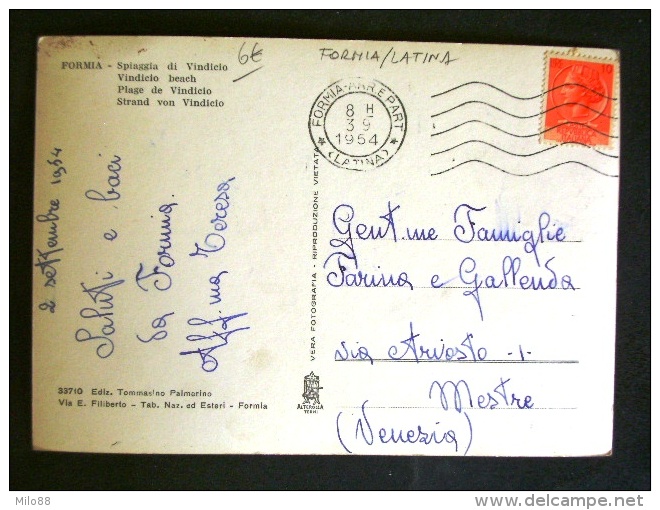 FORMIA - Spiaggia di Vindicio
Vindicio beach
Plage de Vindicio
Strand von Vindicio
6€
FORMIA/LATINA
FORMIA-ARR E PART
8 H
3 9
1954
(LATINA)
10
2 settembre 1954
Saluti e baci
da Formia
Aff.ma Teresa
VERA FOTOGRAFIA - RIPRODUZIONE VIETATA
ALTEROCCA
TERNI
Gent.me Famiglie
Farina e Gallenda
via Ariosto -1-
Mestre
(Venezia)
33710 Ediz. Tommasino Palmarino
Via E. Filiberto - Tab. Naz. ed Esteri - Formia
Milo88
delcampe.net